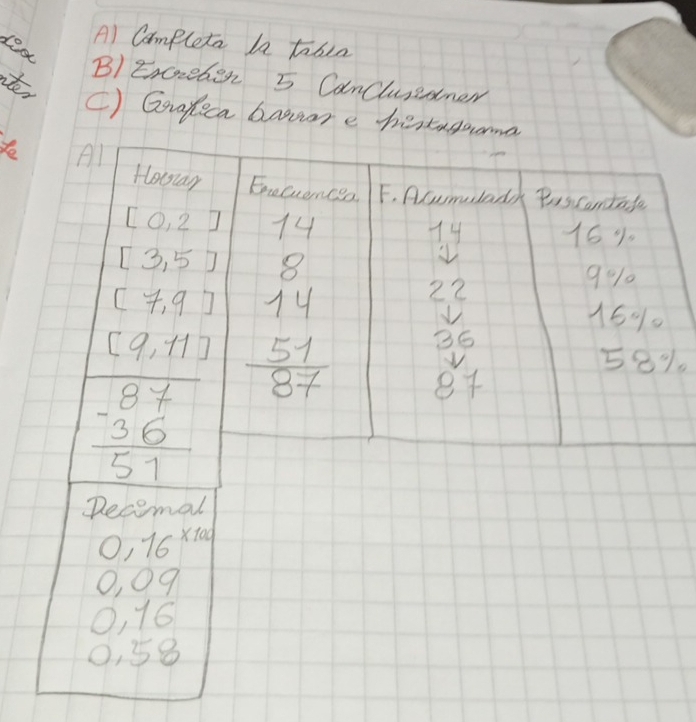 A) Completa la tabla
B) Escribir 5 Conclusiones
C) Grafica barras e histograma
A)
Horas Frecuencia F. Acumulada Porcentaje
[0,2] 14 14 16%
[3,5] 8 22 9%
[7,9] 14 36 16%
[9,11] 51 87 58%
87
87
-36
51
Decimal
0,16 x100
0,09
0,16
0,58